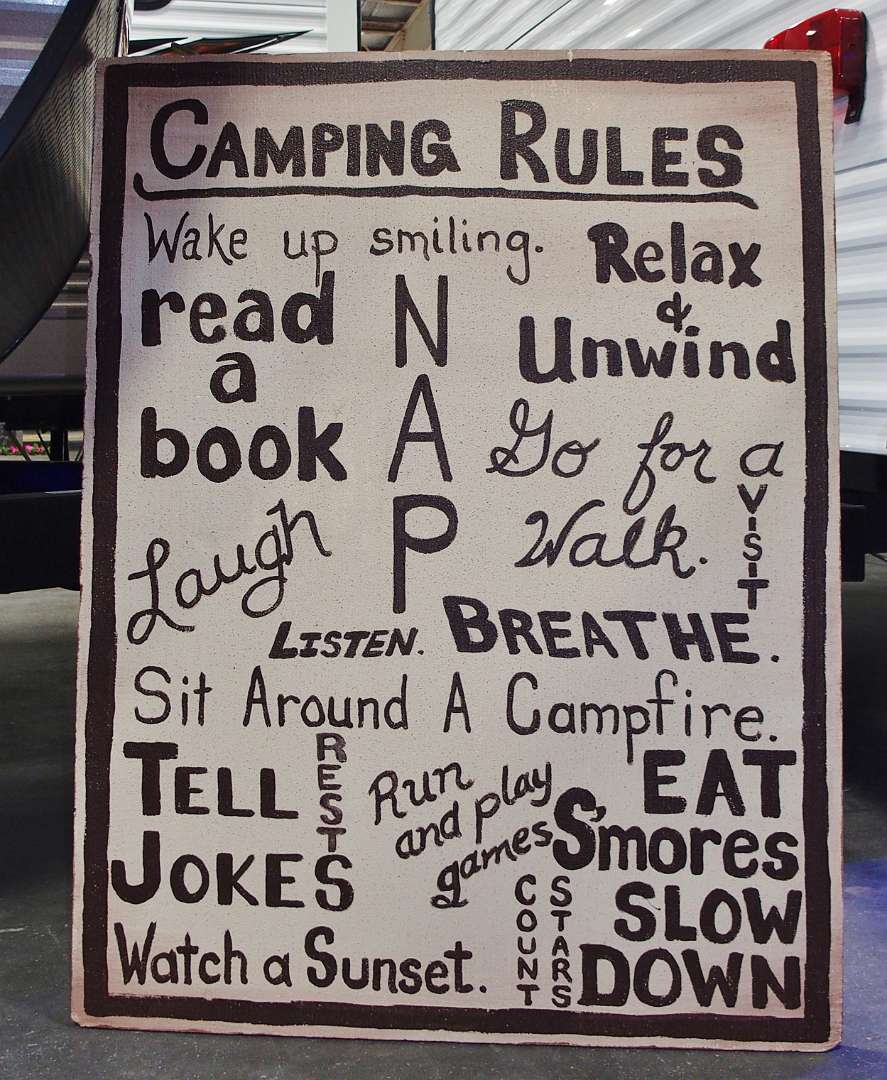 CAMPING RULES
Wake up smiling.
Relax
&
Unwind
read
a
book
NAP
Go for a
Walk.
VISIT
Laugh
LISTEN.
BREATHE.
Sit Around A Campfire.
TELL
JOKES
REST
Run
and play
games
EAT
S'mores
Watch a Sunset.
COUNT
STARS
SLOW
DOWN